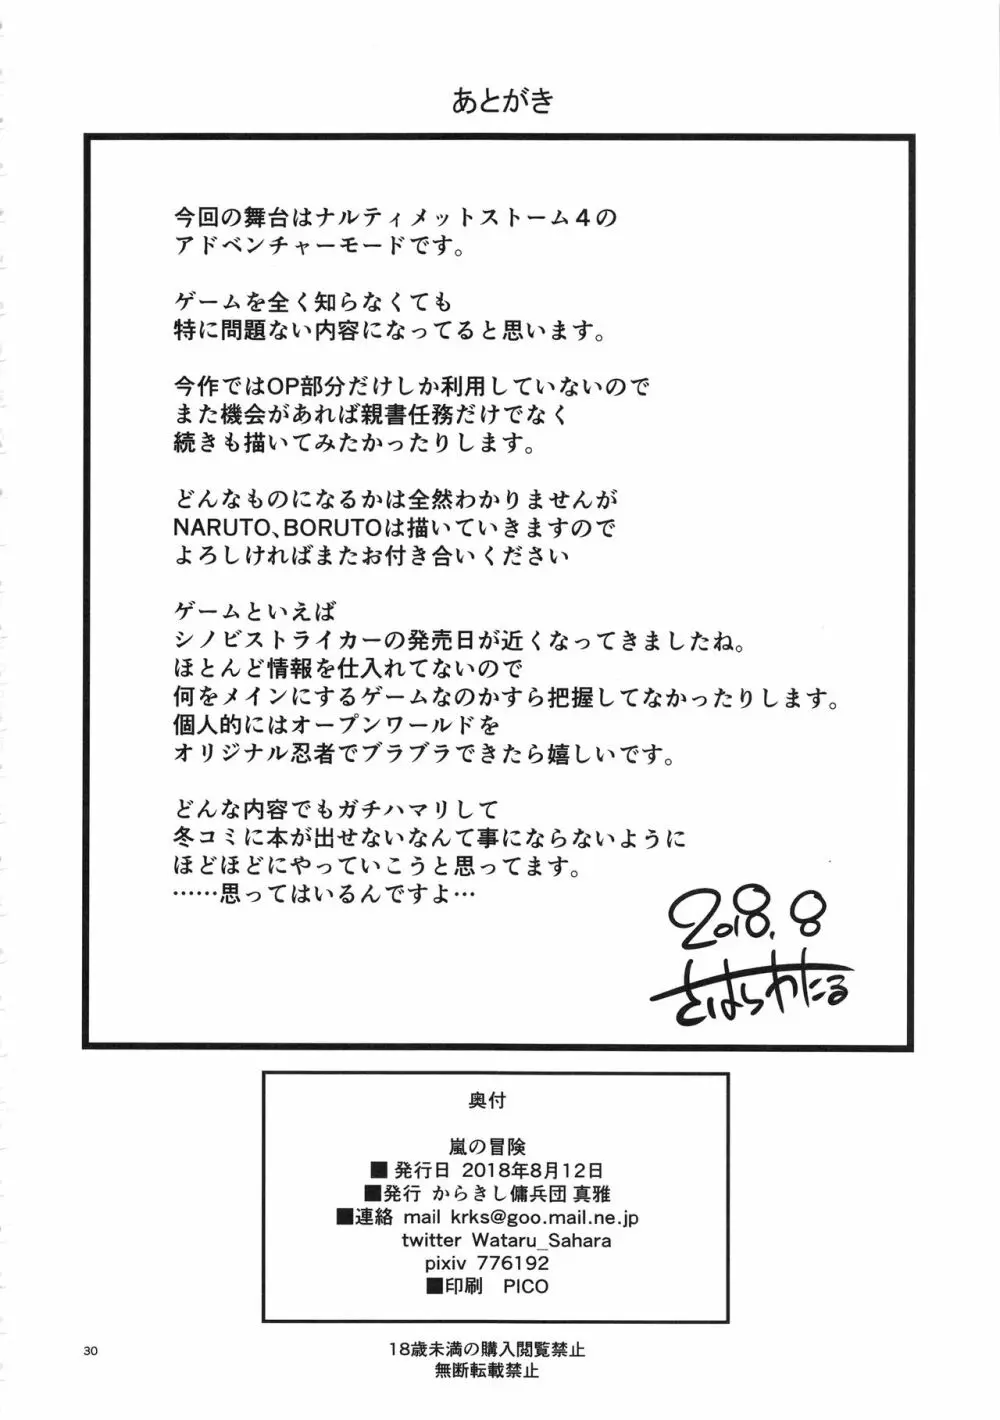 あとがき
今回の舞台はナルティメットストーム4の
アドベンチャーモードです。
ゲームを全く知らなくても
特に問題ない内容になってると思います。
今作ではOP部分だけしか利用していないので
また機会があれば親書任務だけでなく
続きも描いてみたかったりします。
どんなものになるかは全然わかりませんが
NARUTO、BORUTOは描いていきますので
よろしければまたお付き合いください
ゲームといえば
シノビストライカーの発売日が近くなってきましたね。
ほとんど情報を仕入れてないので
何をメインにするゲームなのかすら把握してなかったりします。
個人的にはオープンワールドを
オリジナル忍者でブラブラできたら嬉しいです。
どんな内容でもガチハマリして
冬コミに本が出せないなんて事にならないように
ほどほどにやっていこうと思ってます。
……思ってはいるんですよ…
2018.8
さはらわたる
奥付
嵐の冒険
■ 発行日 2018年8月12日
■発行 からきし傭兵団 真雅
■連絡 mail krks@goo.mail.ne.jp
twitter Wataru_Sahara
pixiv 776192
■印刷 PICO
30
18歳未満の購入閲覧禁止
無断転載禁止